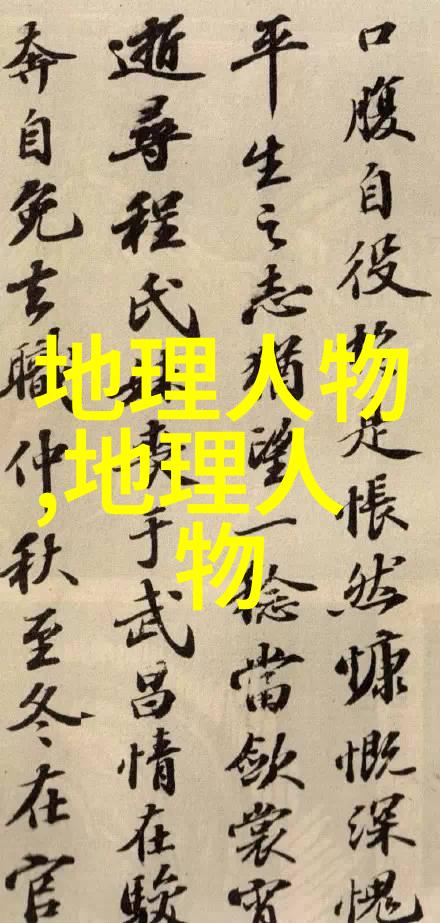 口腹自役於是悵然慷慨深愧
平生之志猶望一稔當斂裳宵
逝尋程氏妹喪于武昌情在駿
奔自免去職仲秋至冬在官
地理人物
,地理人
物